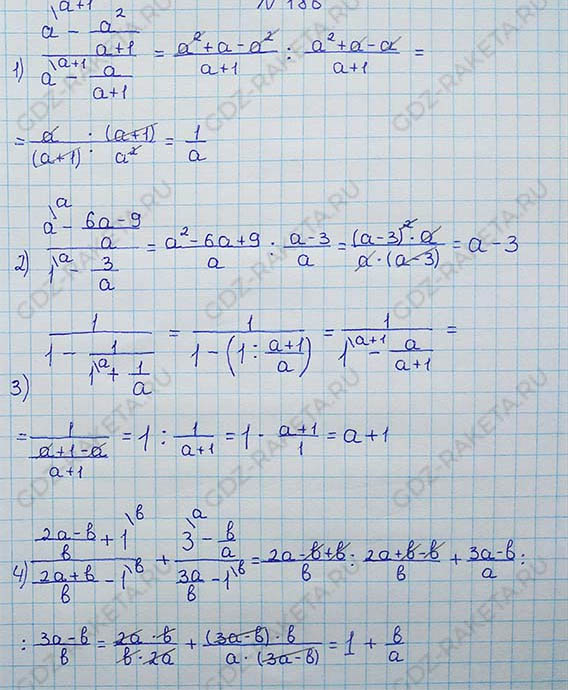 № 186
1) (a^{\a+1} - a²/(a+1)) / (a^{\a+1} - a/(a+1)) = (a²+a-a²)/(a+1) : (a²+a-a)/(a+1) =
= a/(a+1) · (a+1)/a² = 1/a
2) (a^{\a} - (6a-9)/a) / (1^{\a} - 3/a) = (a²-6a+9)/a : (a-3)/a = ((a-3)²·a)/(a·(a-3)) = a-3
3) 1/(1 - 1/(1^{\a} + 1/a)) = 1/(1-(1 : (a+1)/a)) = 1/(1^{\a+1} - a/(a+1)) =
= 1/((a+1-a)/(a+1)) = 1 : 1/(a+1) = 1 · (a+1)/1 = a+1
4) ((2a-b)/b + 1^{\b}) / ((2a+b)/b - 1^{\b}) + (3^{\a} - b/a) / (3a/b - 1^{\b}) = (2a-b+b)/b : (2a+b-b)/b + (3a-b)/a :
: (3a-b)/b = (2a·b)/(b·2a) + ((3a-b)·b)/(a·(3a-b)) = 1 + b/a
GDZ-RAKETA.RU